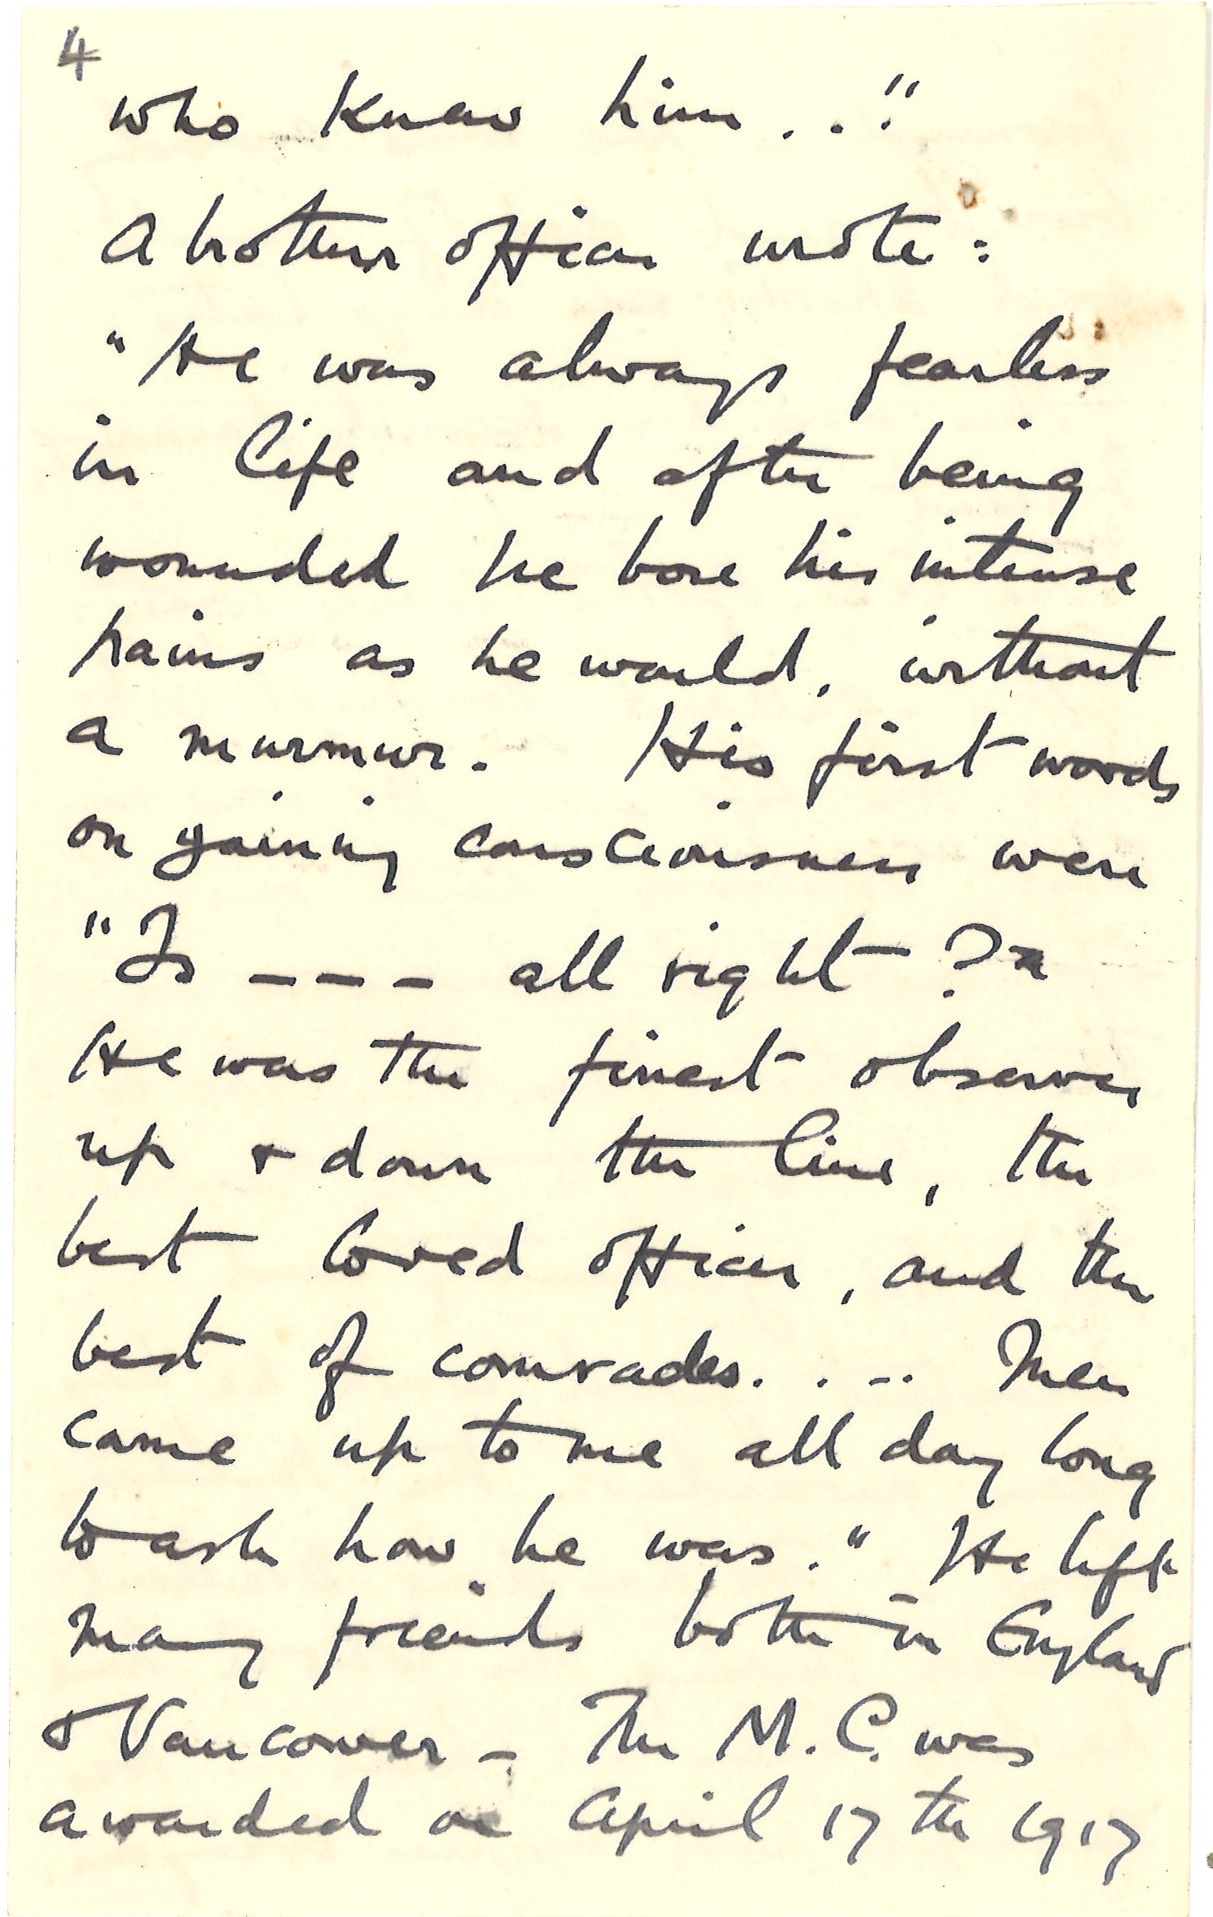 4
who knew him . . !"
A brother officer wrote :
"He was always fearless
in life and after being
wounded he bore his intense
pains as he would, without
a murmur. His first words
on gaining consciousness were
"Is - - - all right ?"
He was the finest observer
up & down the line, the
best loved officer, and the
best of comrades. . . . Men
came up to me all day long
to ask how he was." He left
many friends both in England
& Vancouver - The M.C. was
awarded on April 17th 1917